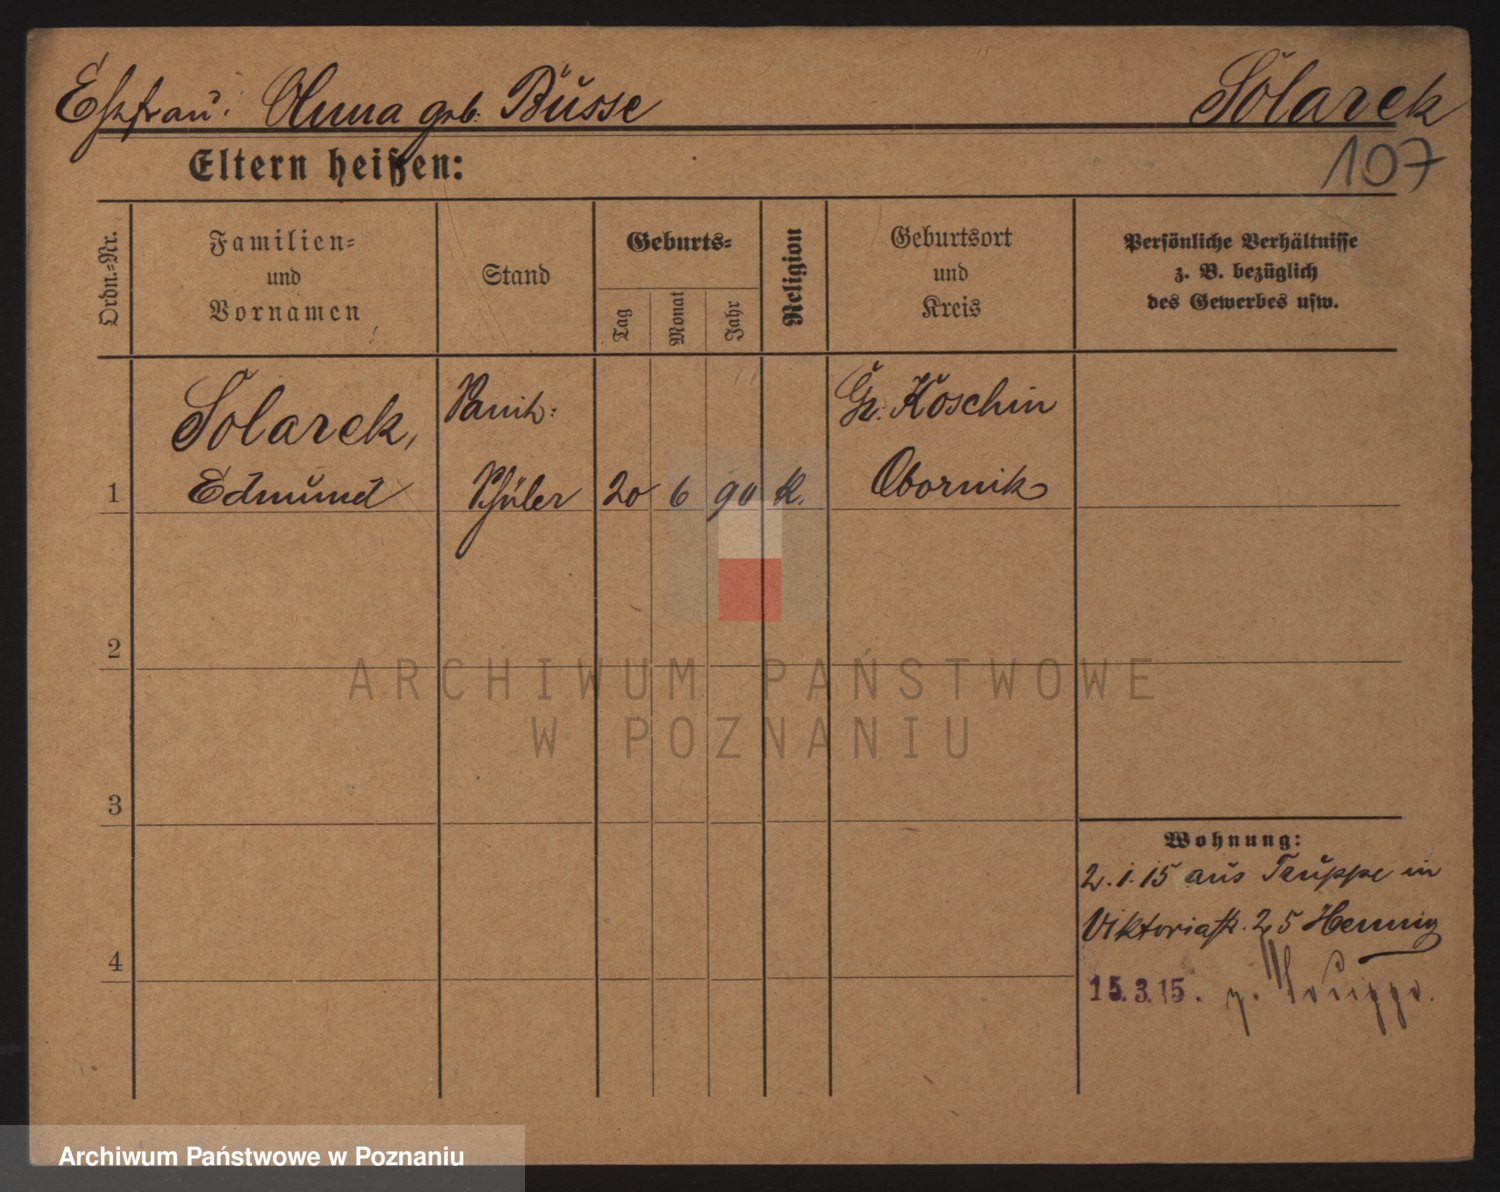 Ehefrau: Anna geb. Busse
Solarek
107
Eltern heißen:
Ordn.-Nr.
Familien-
und
Vornamen
Stand
Geburts-
Tag
Monat
Jahr
Religion
Geburtsort
und
Kreis
Persönliche Verhältnisse
z. B. bezüglich
des Gewerbes usw.
Solarek,
Edmund
Sanit:
Schüler
1
20 6 90 K.
Gr. Koschin
Obornik
2
3
4
Wohnung:
2.1.15 aus Truppe in
Viktoriastr. 25 Hennig
15.3.15. z. Truppe.
ARCHIWUM PAŃSTWOWE
W POZNANIU
Archiwum Państwowe w Poznaniu